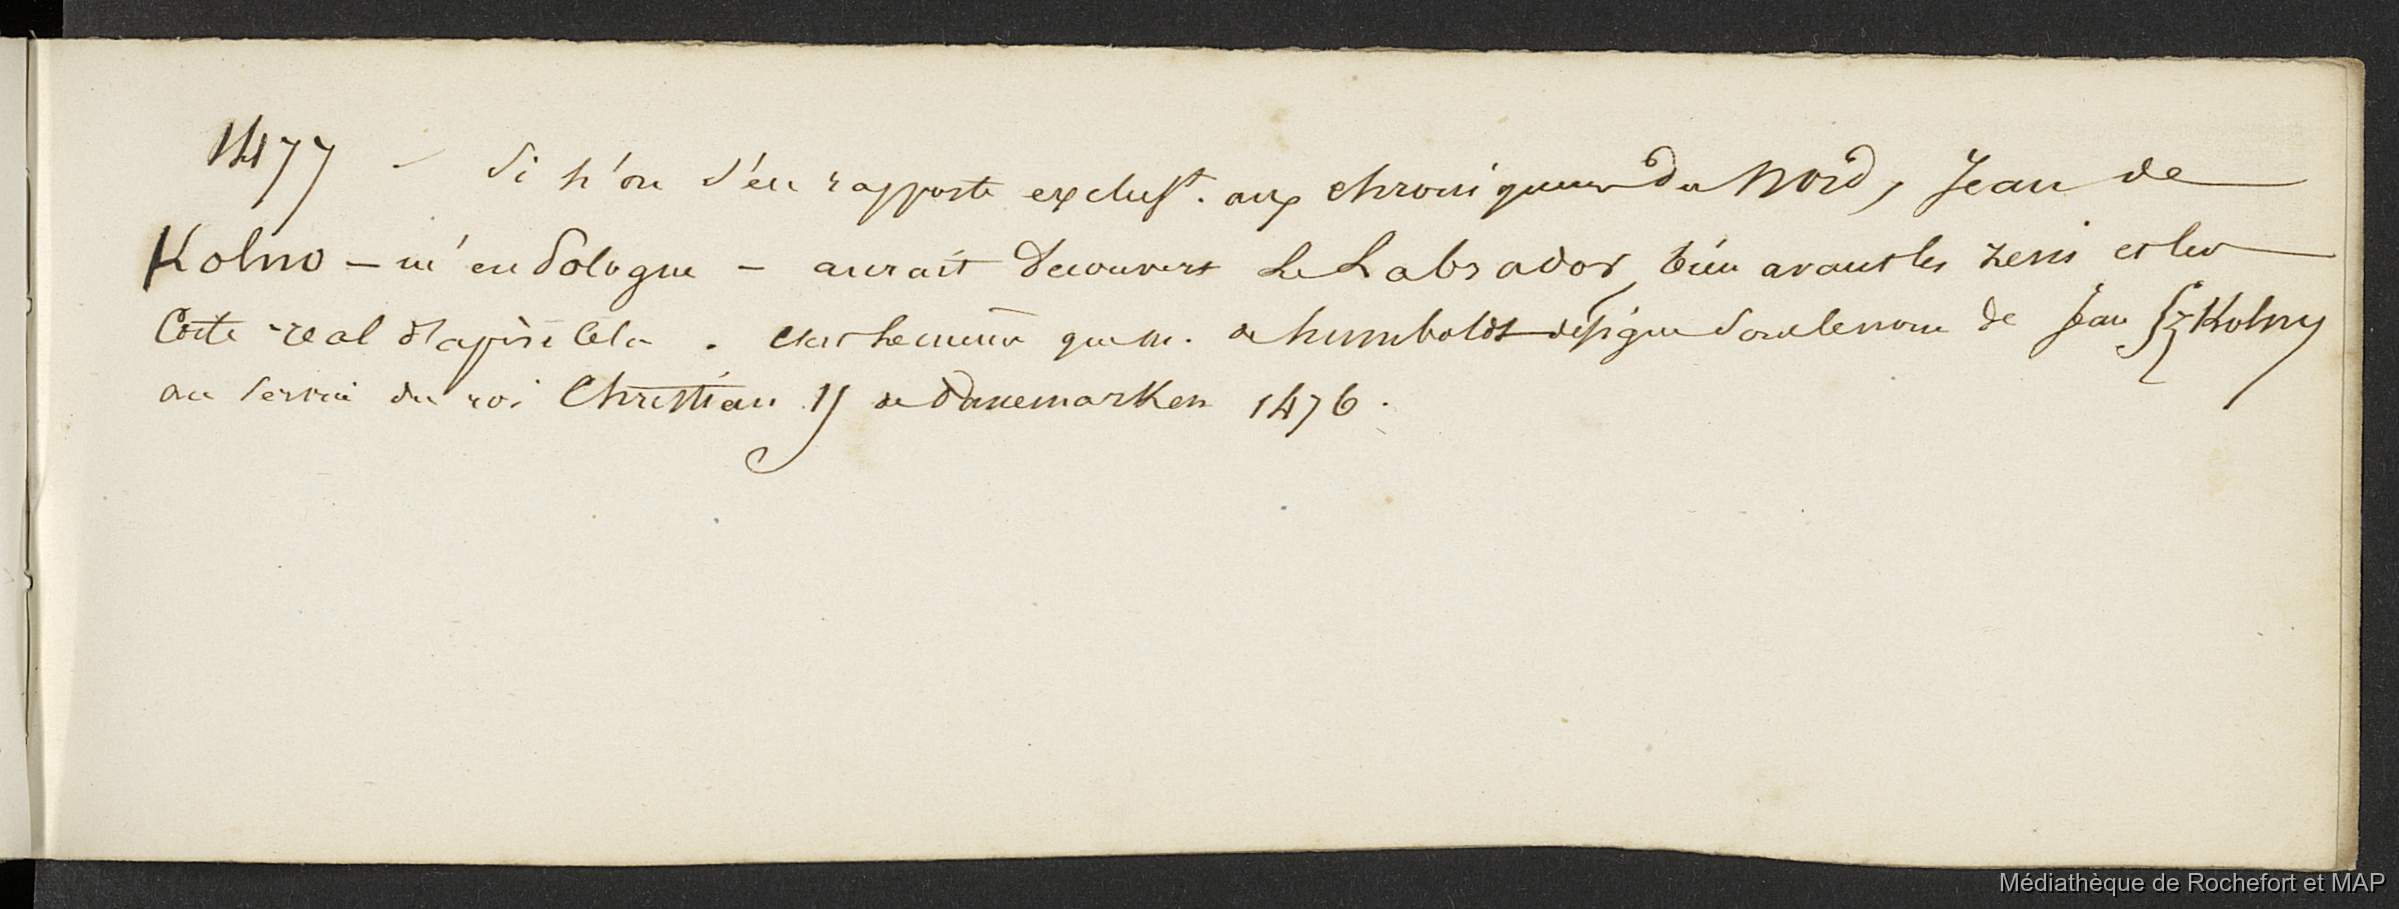 1477 - Si l'on s'en rapporte exclust. aux chroniqueurs du Nord, Jean de
Kolno - né en Pologne - aurait decouvert le Labrador, bien avant les Zeni et les
Corte-real d'après cela. c'est le même que M. de humboldt désigne sous le nom de Jean Szkolny
au service du roi Christian II de Danemark en 1476.
Médiathèque de Rochefort et MAP